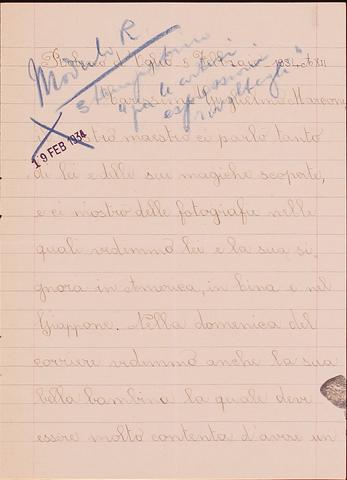 Modulo R
5 Febbraio 1934 A XII
3 stampatino
"per le cortesi
espressioni
rivoltegli"
Guglielmo Marconi
19 FEB 1934
maestro ci parlò tanto
di lei e delle sue magiche scoperte,
e ci mostrò delle fotografie nelle
quali vedemmo lei e la sua si-
gnora in America, in Cina e nel
Giappone. Nella domenica del
corriere vedemmo anche la sua
bella bambina la quale deve
essere molto contenta d'avere un